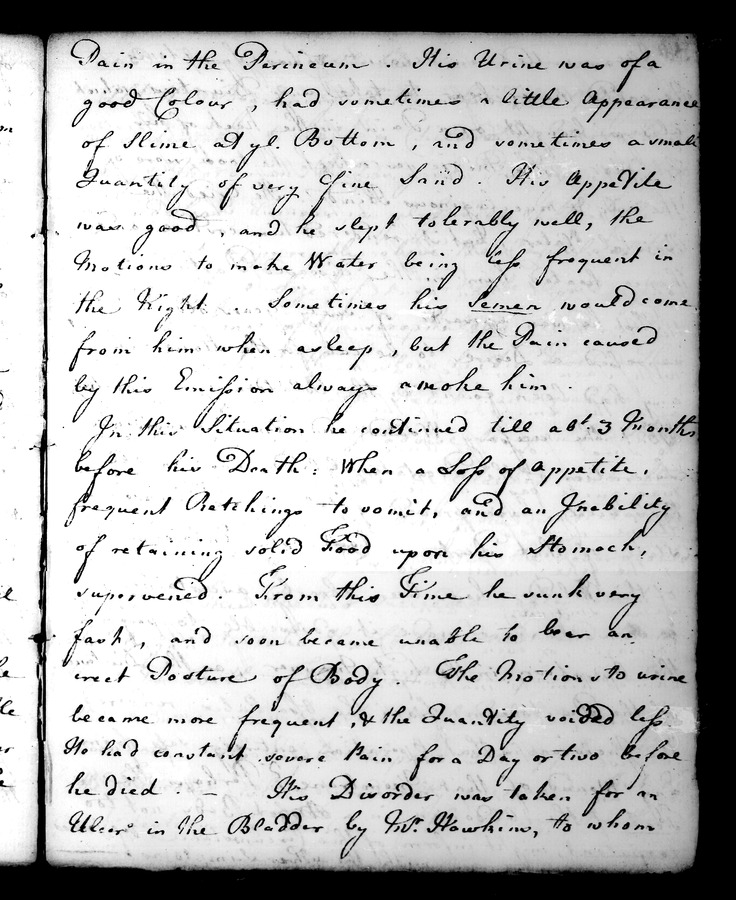 Pain in the Perineum. His Urine was of a
good Colour, had sometimes a little Appearance
of Slime at ye. Bottom, and sometimes a small
Quantity of very fine Sand. His Appetite
was good, and he slept tolerably well, the
Motions to make Water being less frequent in
the Night. Sometimes his Semen would come
from him when asleep, but the Pain caused
by this Emission always awoke him.
In this Situation he continued till abt. 3 Months
before his Death: When a Loss of appetite,
frequent Retchings to vomit, and an Inability
of retaining solid Food upon his Stomach,
supervened. From this Time he sunk very
fast, and soon became unable to bear an
erect Posture of Body. The Motions to urine
became more frequent, & the Quantity voided less
He had constant severe Pain for a Day or two before
he died. — His Disorder was taken for an
Ulcer in the Bladder by Mr. Hawkins, to whom